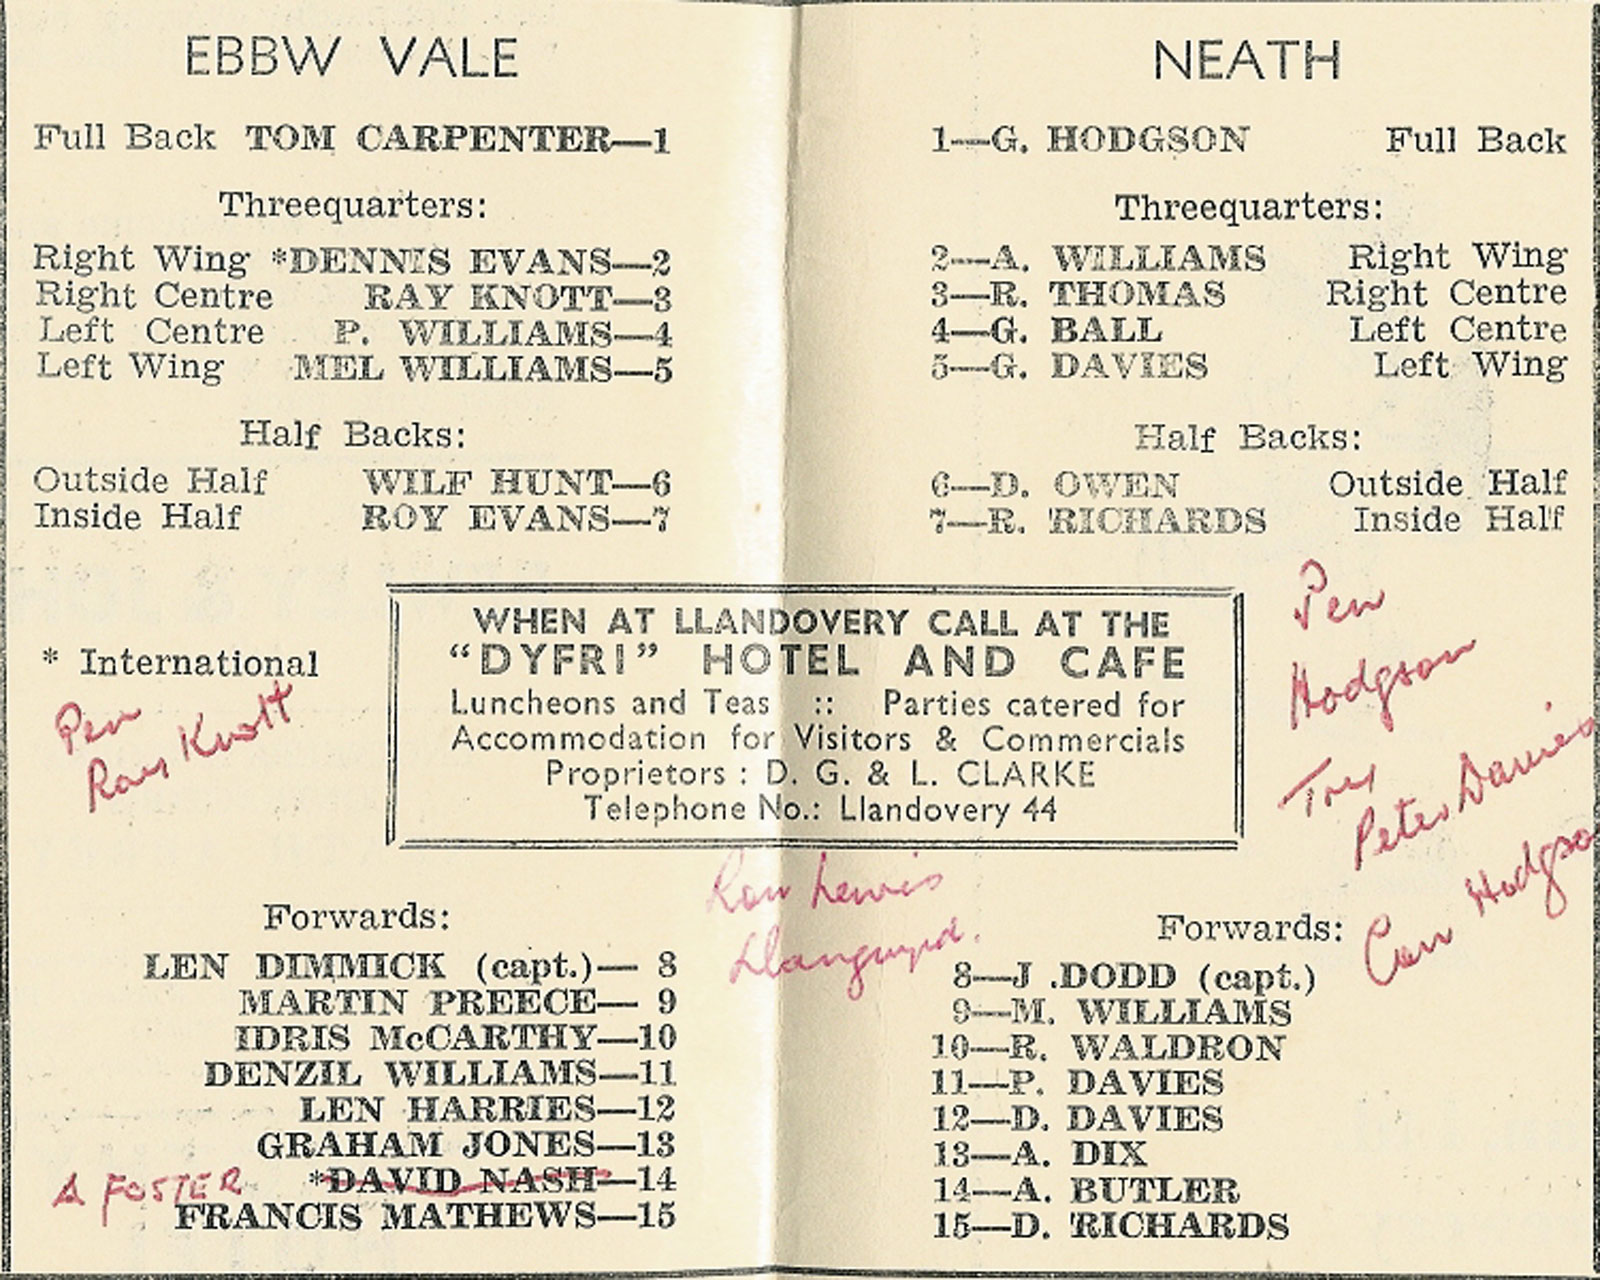 EBBW VALE
Full Back TOM CARPENTER—1
Threequarters:
Right Wing *DENNIS EVANS—2
Right Centre RAY KNOTT—3
Left Centre P. WILLIAMS—4
Left Wing MEL WILLIAMS—5
Half Backs:
Outside Half WILF HUNT—6
Inside Half ROY EVANS—7
* International
Pen
Ray Knott
Forwards:
LEN DIMMICK (capt.)— 8
MARTIN PREECE— 9
IDRIS McCARTHY—10
DENZIL WILLIAMS—11
LEN HARRIES—12
GRAHAM JONES—13
A FOSTER *DAVID NASH—14
FRANCIS MATHEWS—15
WHEN AT LLANDOVERY CALL AT THE
“DYFRI” HOTEL AND CAFE
Luncheons and Teas :: Parties catered for
Accommodation for Visitors & Commercials
Proprietors : D. G. & L. CLARKE
Telephone No.: Llandovery 44
Ron Lewis
Llangwyd.
NEATH
1—G. HODGSON Full Back
Threequarters:
2—A. WILLIAMS Right Wing
3—R. THOMAS Right Centre
4—G. BALL Left Centre
5—G. DAVIES Left Wing
Half Backs:
6—D. OWEN Outside Half
7—R. RICHARDS Inside Half
Pen
Hodgson
Try
Peter Davies
Con Hodgson
Forwards:
8—J .DODD (capt.)
9—M. WILLIAMS
10—R. WALDRON
11—P. DAVIES
12—D. DAVIES
13—A. DIX
14—A. BUTLER
15—D. RICHARDS